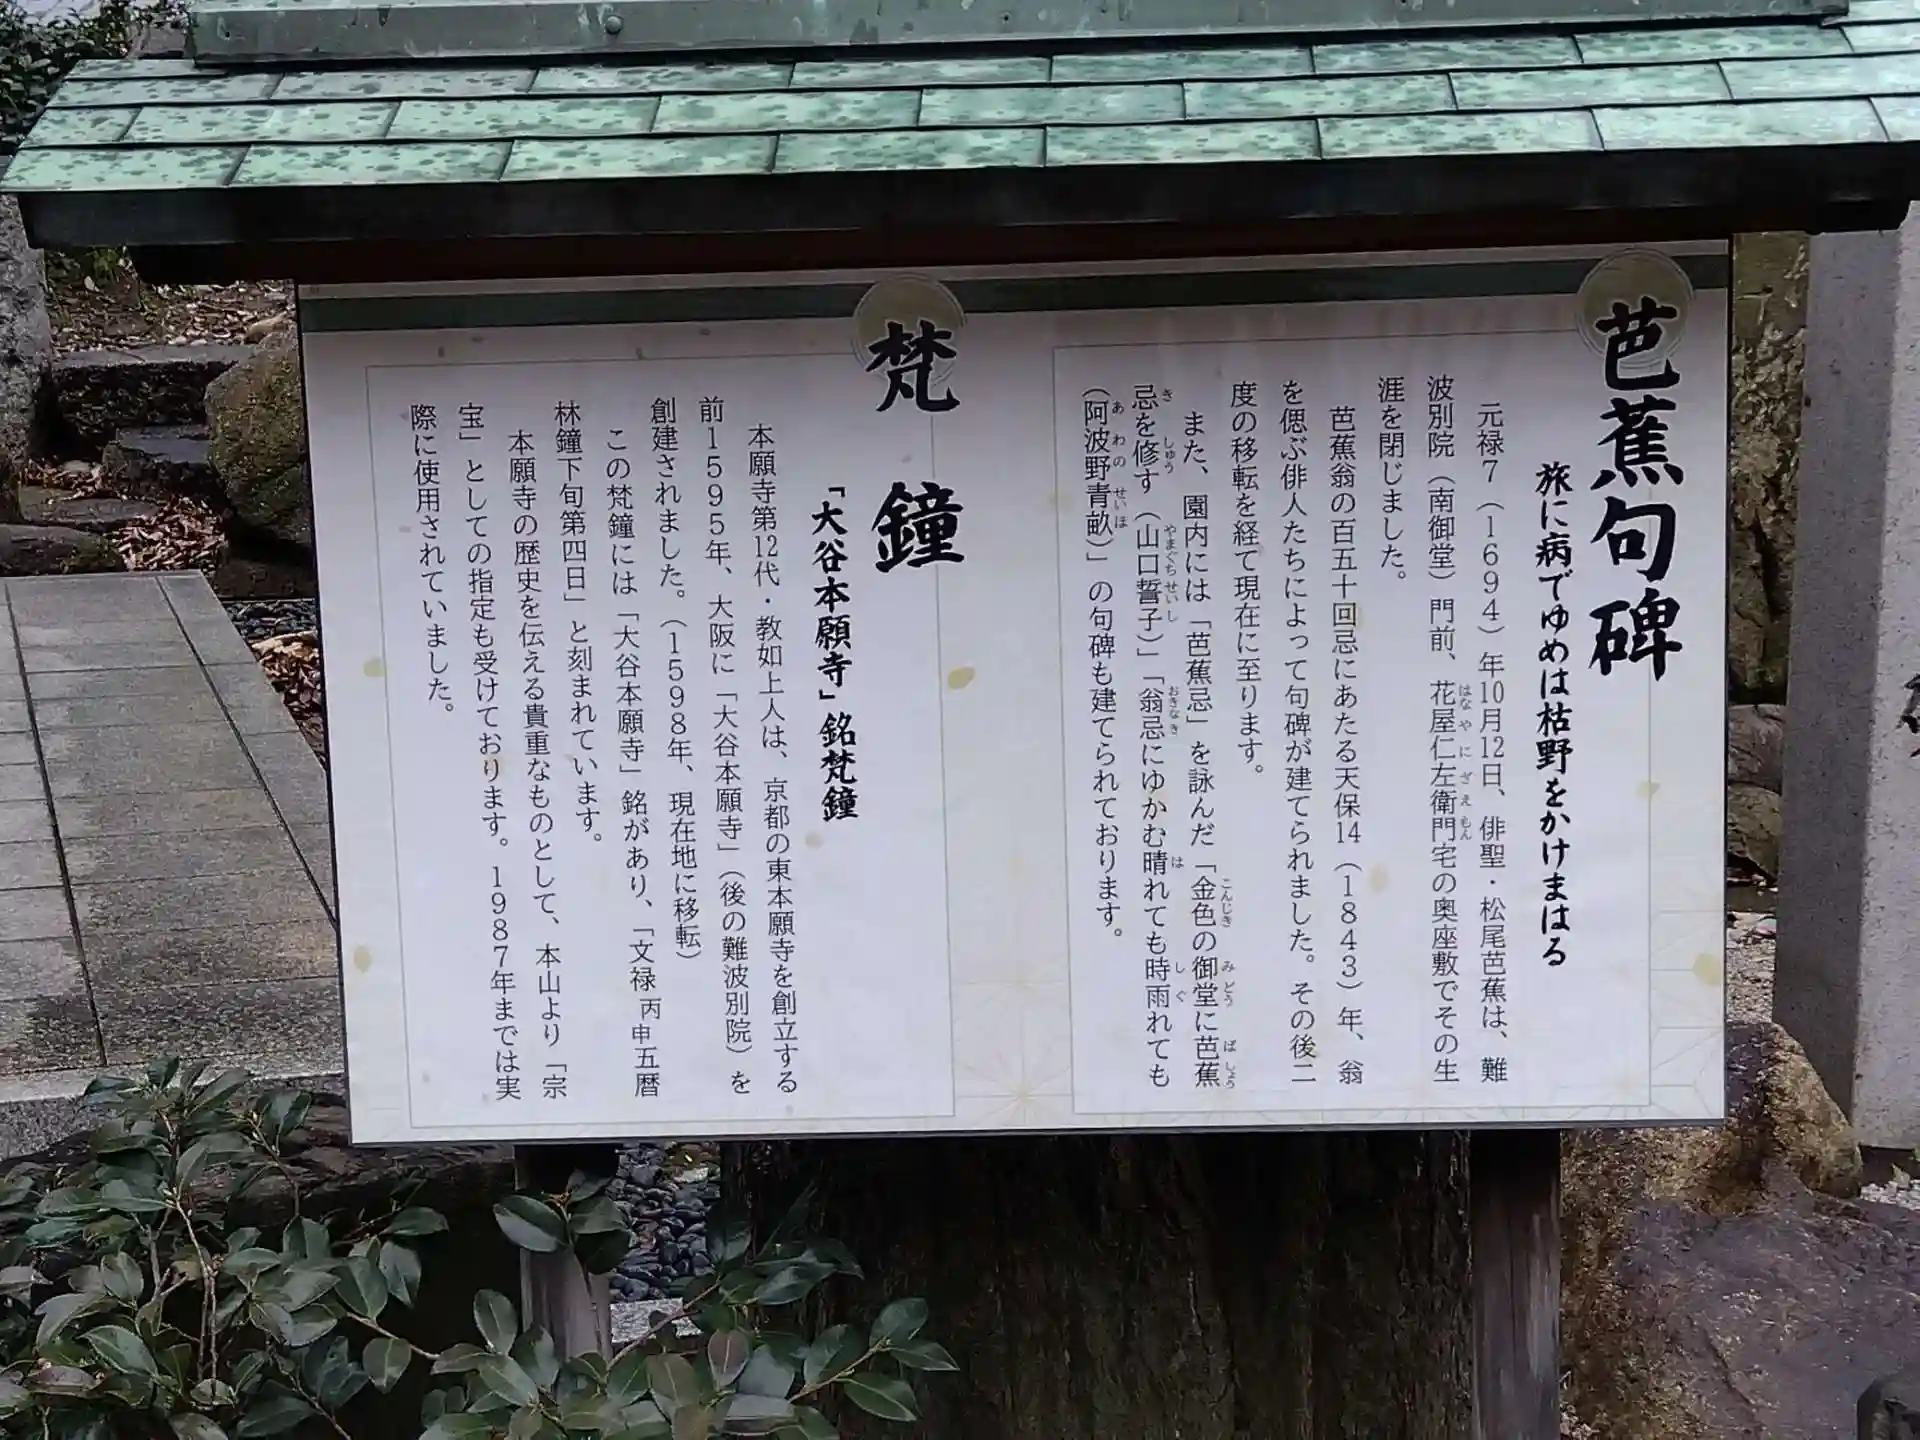 芭蕉句碑
旅に病でゆめは枯野をかけまはる
元禄7（1694）年10月12日、俳聖・松尾芭蕉は、難
波別院（南御堂）門前、花屋仁左衛門宅の奥座敷でその生
はなやにざえもん
涯を閉じました。
芭蕉翁の百五十回忌にあたる天保14（1843）年、翁
を偲ぶ俳人たちによって句碑が建てられました。その後二
度の移転を経て現在に至ります。
また、園内には「芭蕉忌」を詠んだ「金色の御堂に芭蕉
こんじき みどう ばしょう
忌を修す（山口誓子）」「翁忌にゆかむ晴れても時雨れても
き しゅう やまぐちせいし おきなき は しぐ
（阿波野青畝）」の句碑も建てられております。
あわの せいほ
梵鐘
「大谷本願寺」銘梵鐘
本願寺第12代・教如上人は、京都の東本願寺を創立する
前1595年、大阪に「大谷本願寺」（後の難波別院）を
創建されました。（1598年、現在地に移転）
この梵鐘には「大谷本願寺」銘があり、「文禄丙申五暦
林鐘下旬第四日」と刻まれています。
本願寺の歴史を伝える貴重なものとして、本山より「宗
宝」としての指定も受けております。1987年までは実
際に使用されていました。